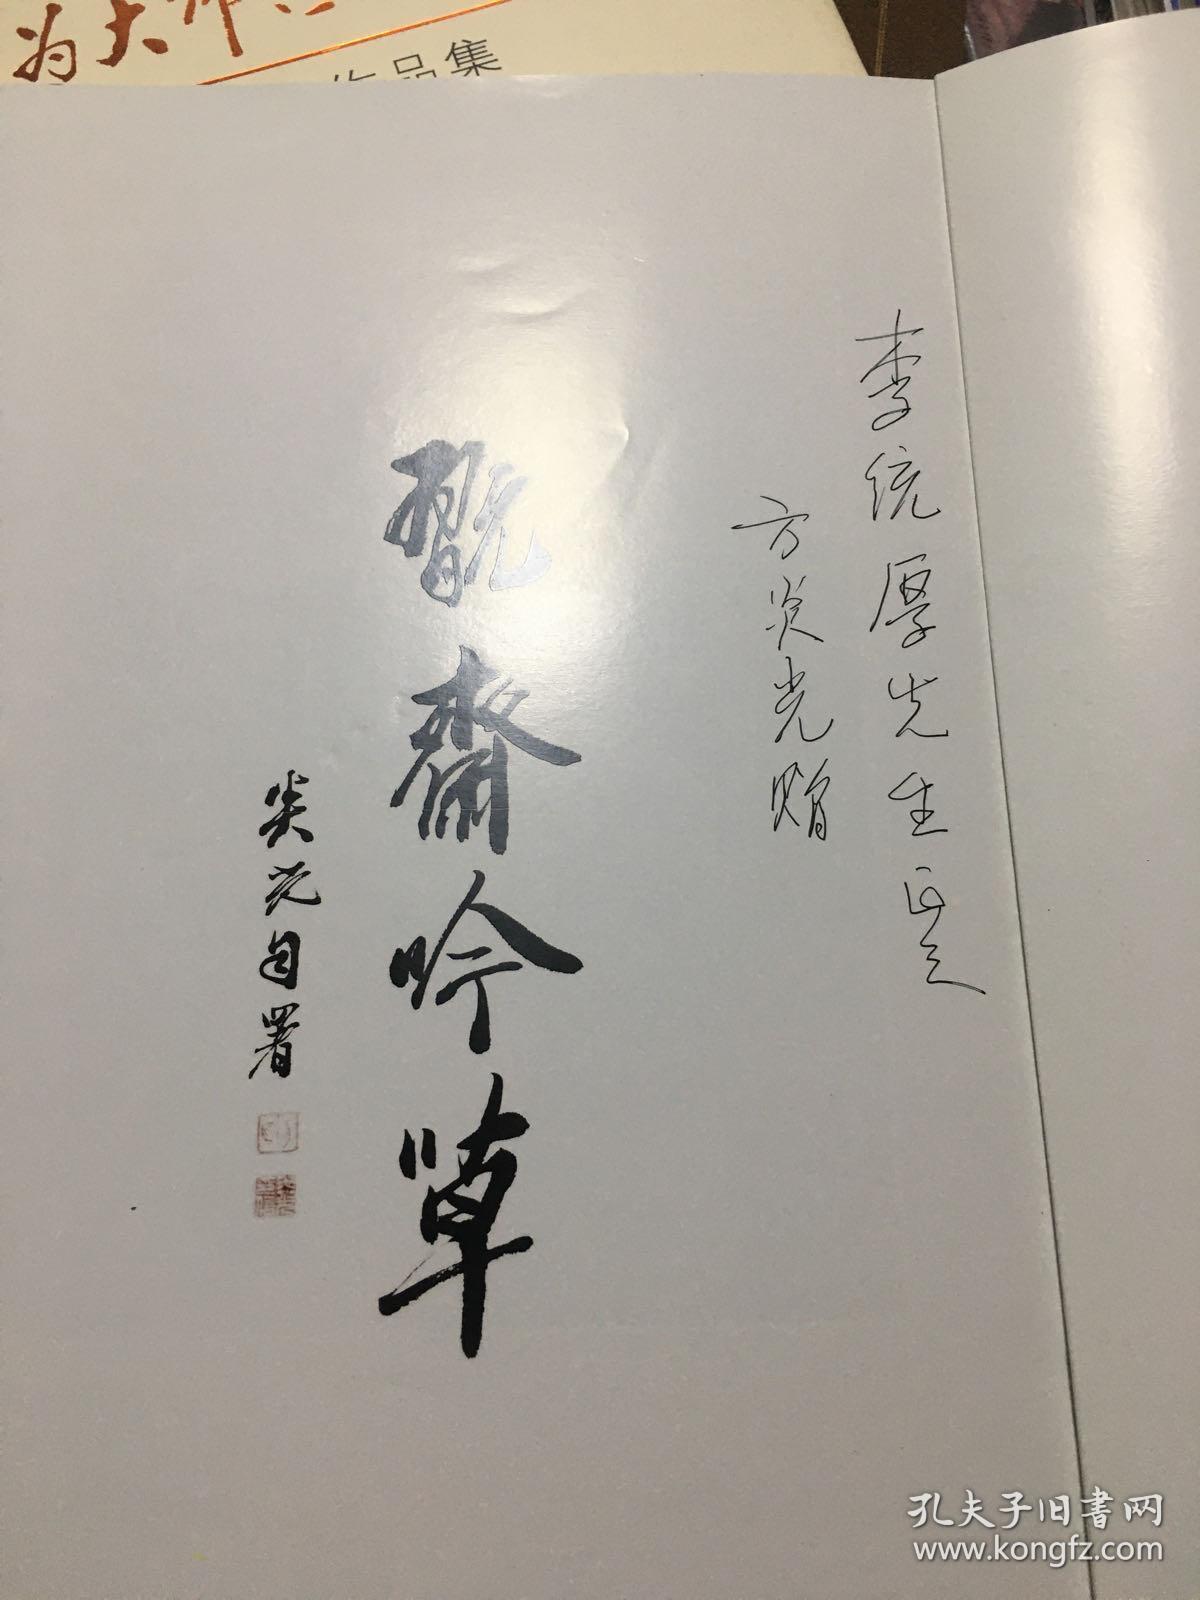 为大师
作品集
李统厚先生正之
方炎光赠
翫齋吟草
炎光自署
孔夫子旧书网
www.kongfz.com